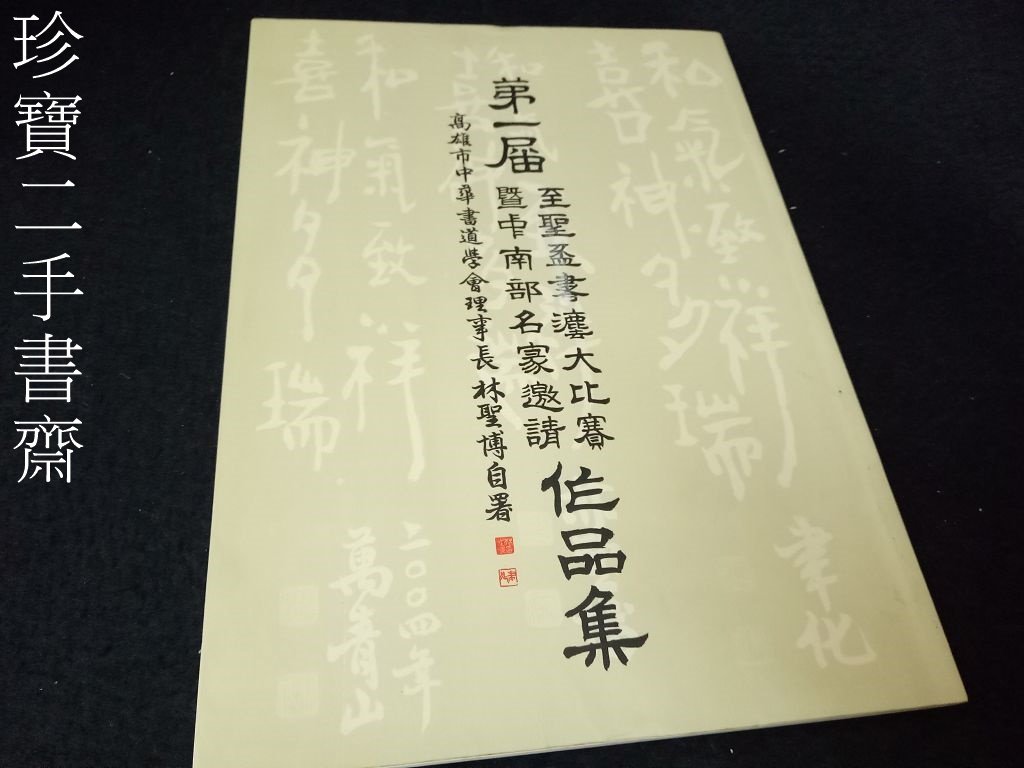 珍寶二手書齋
第一屆
至聖盃書瀍大比賽
暨中南部名家邀請
作品集
高雄市中華書道學會理事長林聖博自署
和氣致祥
喜神多瑞
和氣致祥
喜神多瑞
二〇〇四年
萬青山